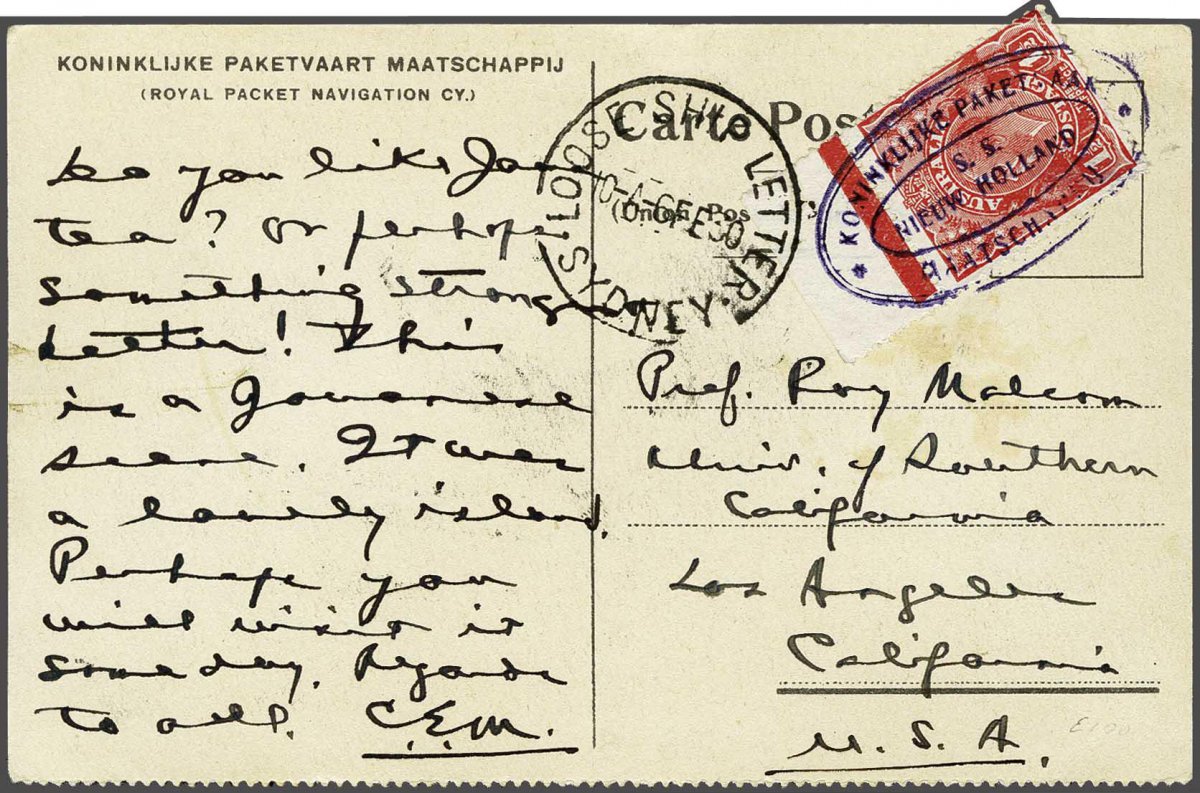 KONINKLIJKE PAKETVAART MAATSCHAPPIJ
(ROYAL PACKET NAVIGATION CY.)
Do you like Java
tea? Or perhaps
something strong
better! This
is a Javanese
scene. It was
a lovely island.
Perhaps you
will visit it
some day. Regards
to all. C.E.M.
Carte Pos
(Union Pos
LOOSE SHIP LETTER. SYDNEY
6 FE 30
AUSTRALIA
KONINKLIJKE PAKETVAART
S. S.
NIEUW HOLLAND
MAATSCHAPPIJ
Prof. Roy Malcom
Univ. of Southern
California
Los Angeles
California
U. S. A.
£100